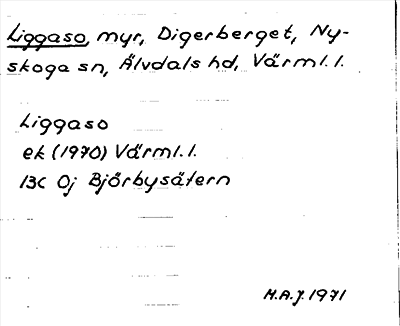 Liggaso, myr, Digerberget, Ny-
skoga sn, Älvdals hd, Värml. l.
Liggaso
ek (1970) Värml. l.
13C 0j Björbysätern
H.A.J. 1971